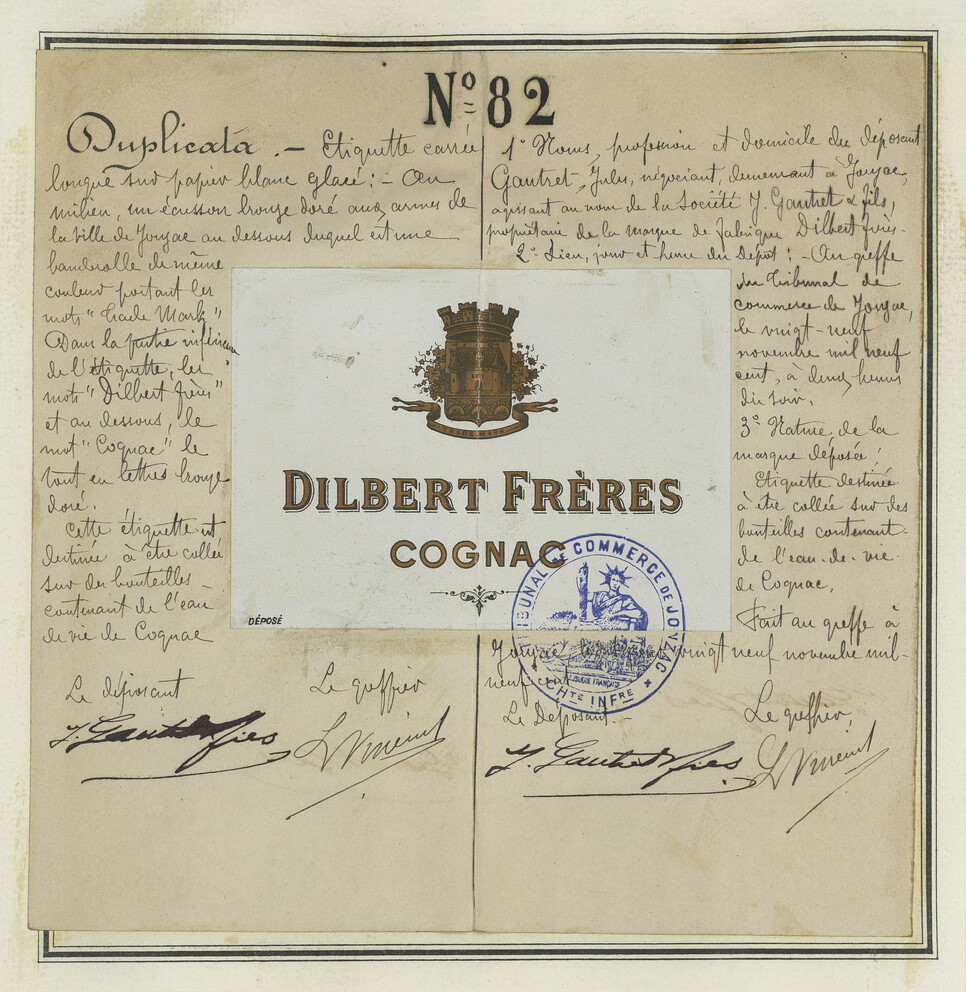 Nº 82
Duplicata. — Etiquette carrée
longue sur papier blanc glacé: — Au
milieu, un écusson bronze doré aux armes de
la ville de Jonzac au dessous duquel est une
banderolle de même
couleur portant les
mots "Trade Mark"
Dans la partie inférieure
de l'étiquette, les
mots "Dilbert frères"
et au dessous, le
mot "Cognac" le
tout en lettres bronze
doré.
Cette étiquette est
destinée à être collée
sur des bouteilles
contenant de l'eau
de vie de Cognac
Le déposant
Le greffier
J. Gautret & fies
L Vincent
1º Noms, profession et domicile du déposant
Gautret, Jules, négociant, demeurant à Jonzac,
agissant au nom de la Société J. Gautret & fils,
propriétaire de la marque de fabrique Dilbert frères.
2º Lieu, jour et heure du Dépôt: — Au greffe
du Tribunal de
commerce de Jonzac,
le vingt-neuf
novembre mil neuf
cent, à deux heures
du soir.
3º Nature de la
marque déposée:
Etiquette destinée
à être collée sur des
bouteilles contenant
de l'eau-de-vie
de Cognac.
Fait au greffe à
Jonzac, vingt neuf novembre mil-
neuf cent
Le Déposant.-
Le greffier,
J. Gautret & fies
L Vincent
TRADE MARK
DILBERT FRÈRES
COGNAC
DÉPOSÉ
TRIBUNAL DE COMMERCE DE JONZAC
RÉPUBLIQUE FRANÇAISE
CHTE INFRE